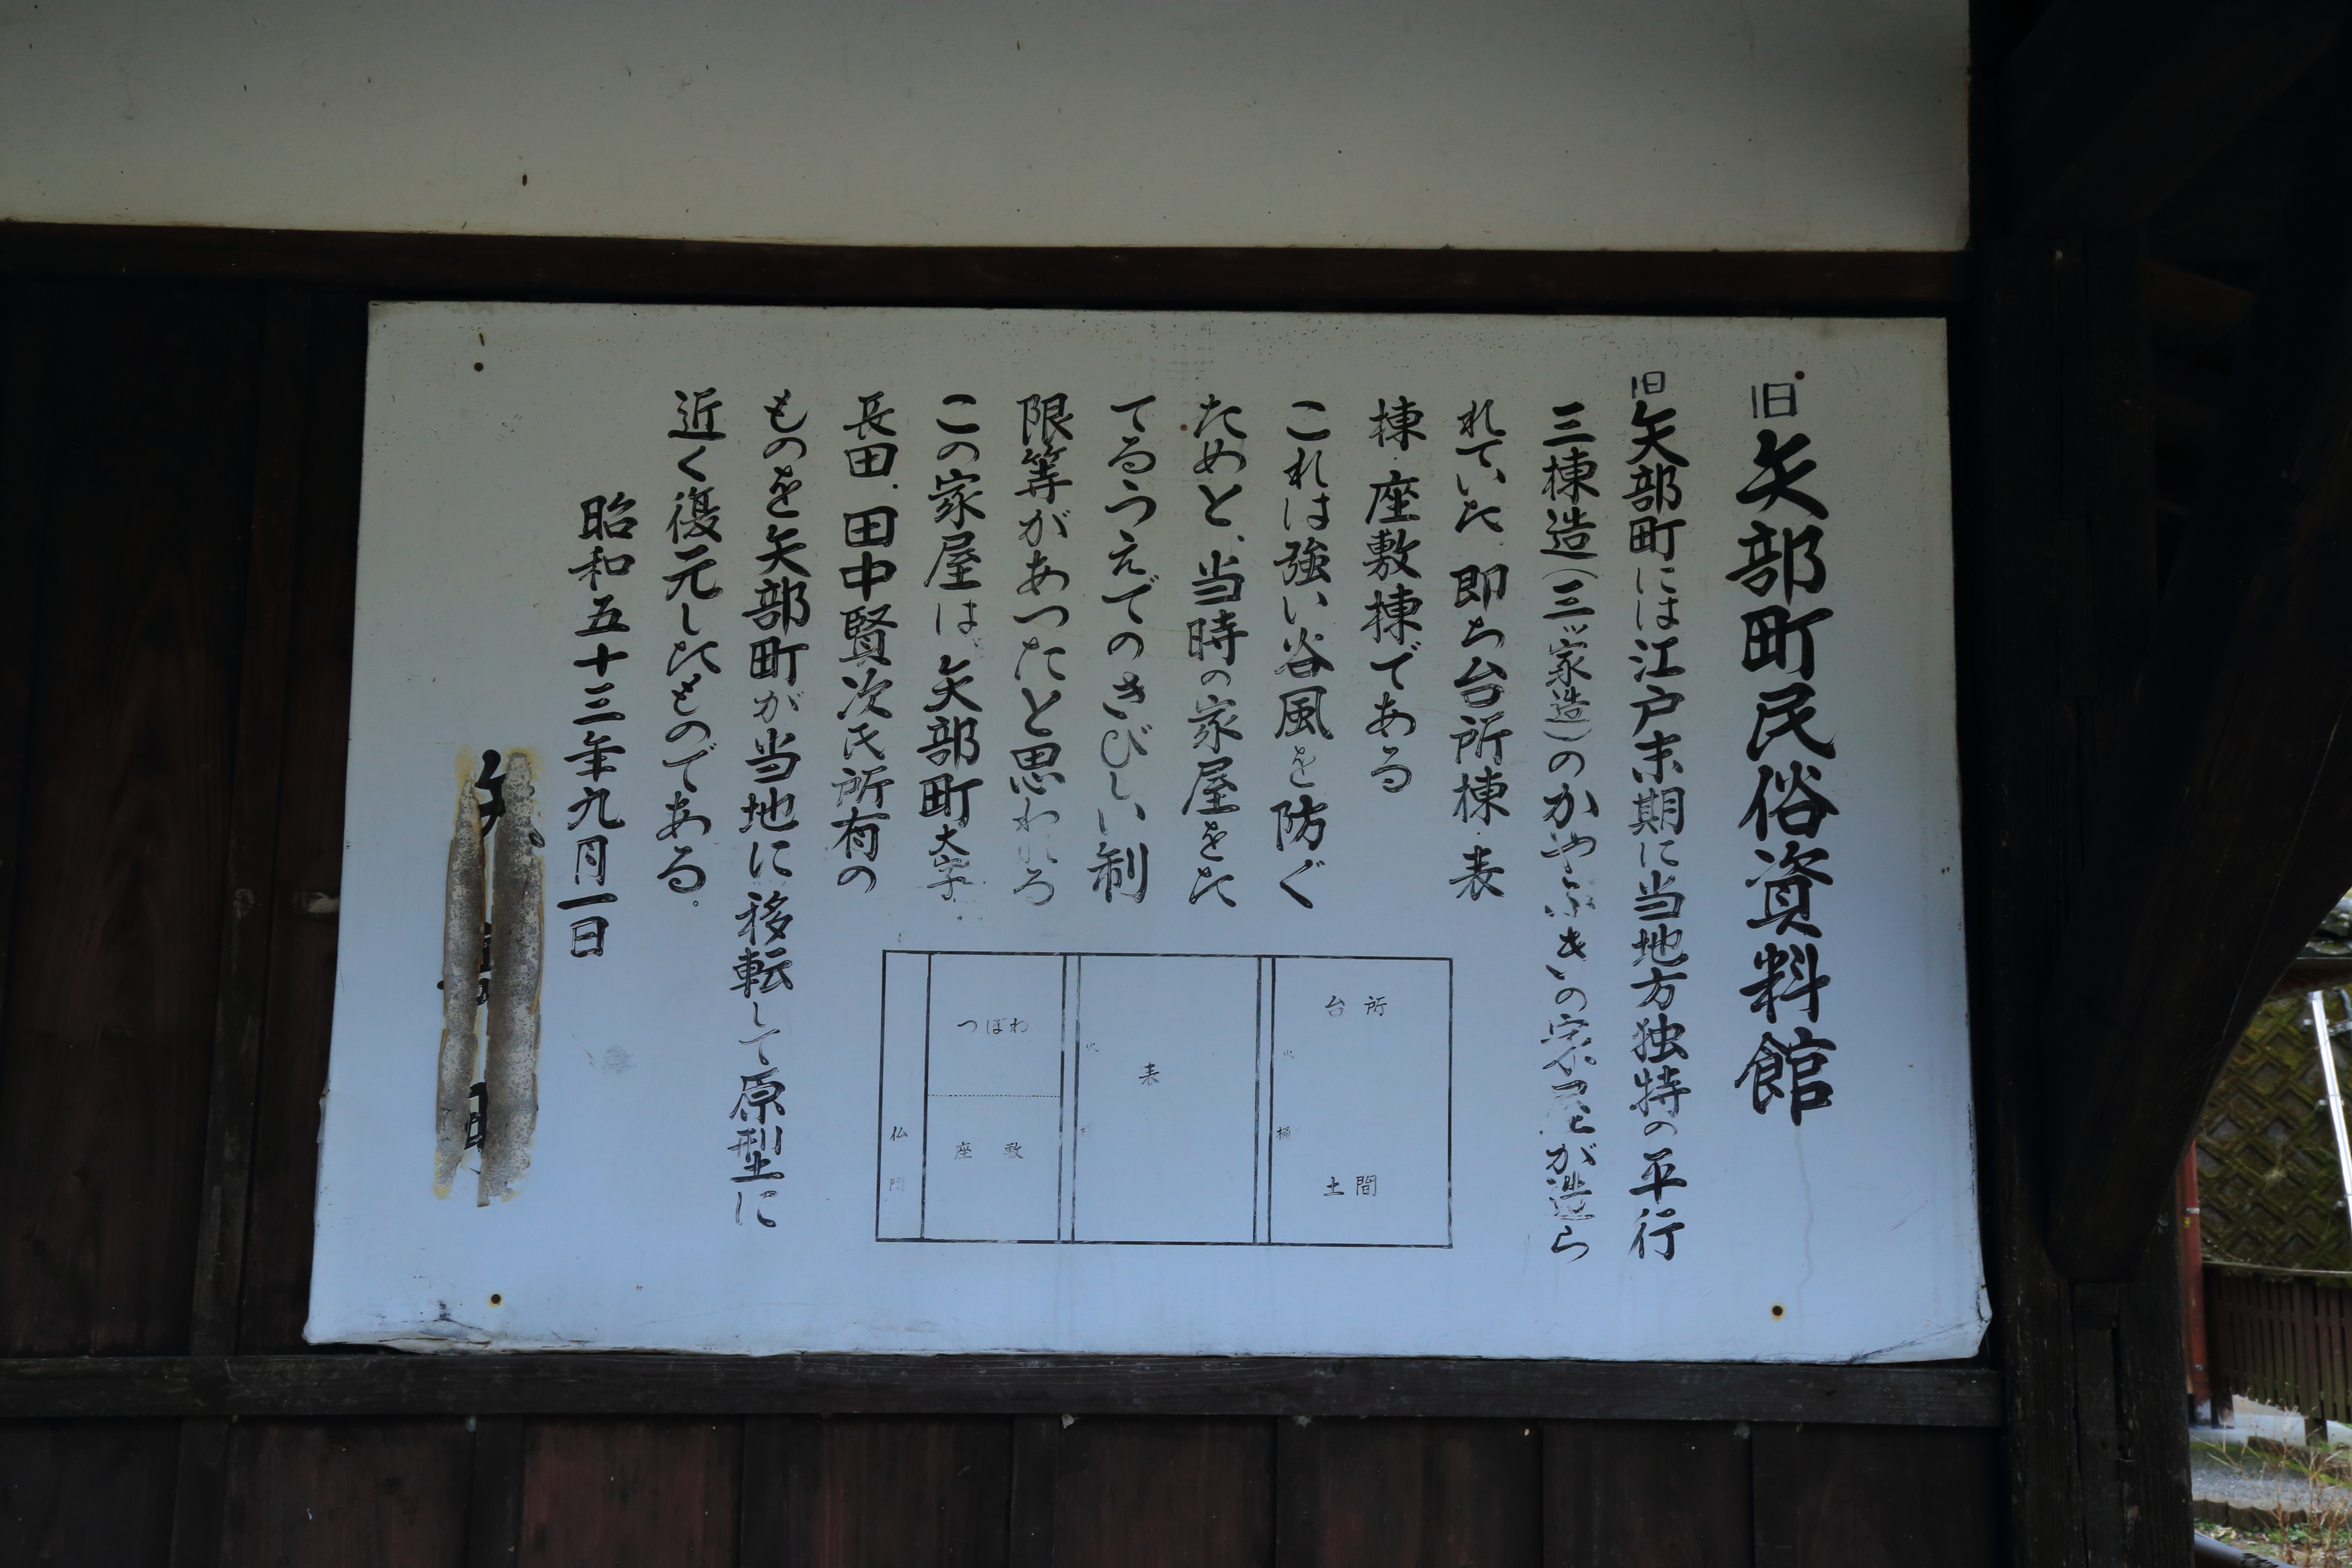 旧矢部町民俗資料館
旧矢部町には江戸末期に当地方独特の平行
三棟造(三ッ家造)のかやぶきの家屋が造ら
れていた、即ち台所棟・表
棟・座敷棟である
これは強い谷風を防ぐ
ためと、当時の家屋をた
てるうえでのきびしい制
限等があつたと思われる
この家屋は、矢部町大字
長田、田中賢次氏所有の
ものを矢部町が当地に移転して原型に
近く復元したものである。
昭和五十三年九月一日
台所
土間
表
つぼね
座敷
仏間